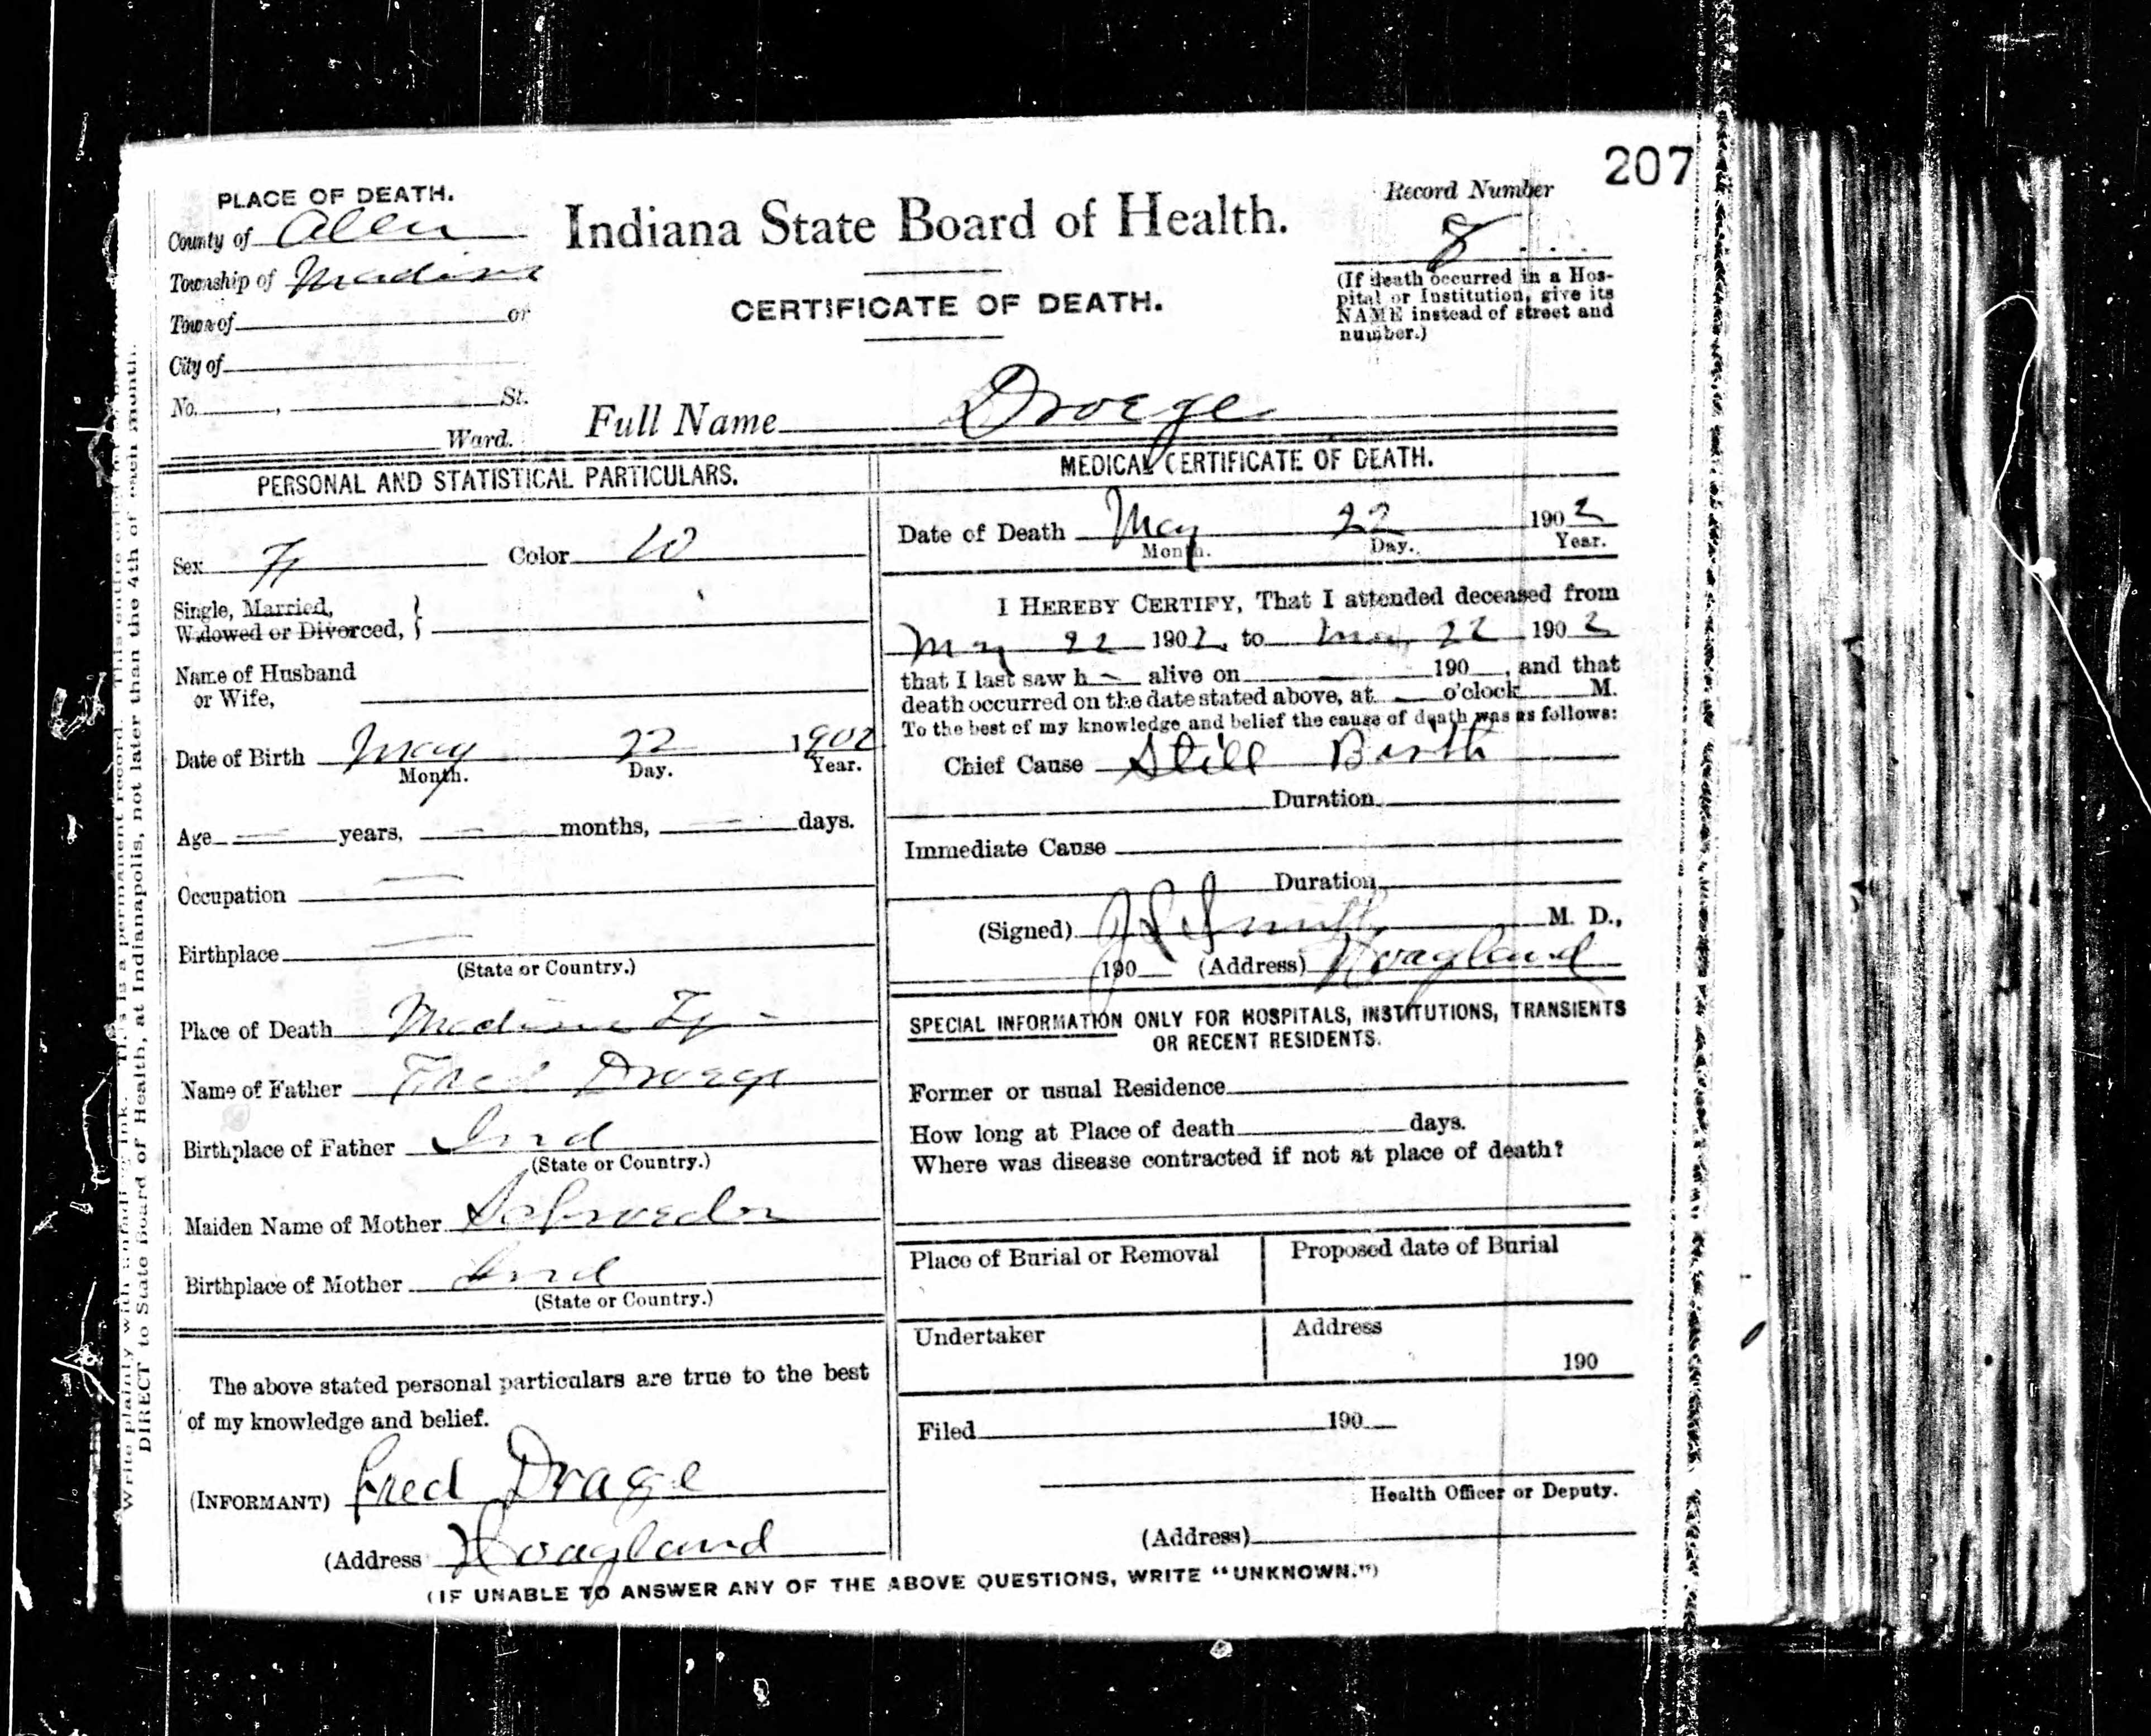 207
PLACE OF DEATH.
County of Allen
Township of Madison
Town of or
City of
No. , St.
Ward.
Indiana State Board of Health.
CERTIFICATE OF DEATH.
Record Number
8
(If death occurred in a Hos-
pital or Institution, give its
NAME instead of street and
number.)
Full Name Droege
PERSONAL AND STATISTICAL PARTICULARS.
Sex F Color W
Single, Married,
Widowed or Divorced,
Name of Husband
or Wife,
Date of Birth May 22 1902
Month. Day. Year.
Age years, months, days.
Occupation
Birthplace
(State or Country.)
Place of Death Madison Tp
Name of Father Fred Droege
Birthplace of Father Ind
(State or Country.)
Maiden Name of Mother Schroeder
Birthplace of Mother Ind
(State or Country.)
The above stated personal particulars are true to the best
of my knowledge and belief.
(INFORMANT) Fred Drage
(Address Hoagland
MEDICAL CERTIFICATE OF DEATH.
Date of Death May 22 1902
Month. Day. Year.
I HEREBY CERTIFY, That I attended deceased from
May 22 1902, to May 22 1902
that I last saw h alive on 190 , and that
death occurred on the date stated above, at o'clock M.
To the best of my knowledge and belief the cause of death was as follows:
Chief Cause Still Birth
Duration
Immediate Cause
Duration
(Signed) Smith M. D.,
190 (Address) Hoagland
SPECIAL INFORMATION ONLY FOR HOSPITALS, INSTITUTIONS, TRANSIENTS
OR RECENT RESIDENTS.
Former or usual Residence
How long at Place of death days.
Where was disease contracted if not at place of death?
Place of Burial or Removal Proposed date of Burial
Undertaker Address
190
Filed 190
Health Officer or Deputy.
(Address)
(IF UNABLE TO ANSWER ANY OF THE ABOVE QUESTIONS, WRITE "UNKNOWN.")
Write plainly with unfading ink. This is a permanent record. This entire
DIRECT to State Board of Health, at Indianapolis, not later than the 4th of each month.